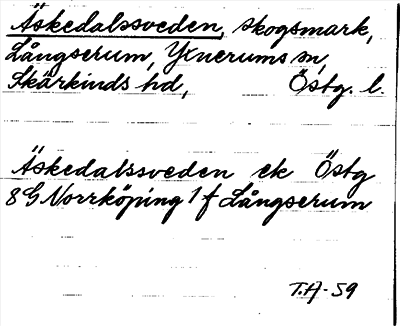 Äskedalssveden, skogsmark,
Långserum, Yxnerums sn,
Skärkinds hd, Östg. l.
Äskedalssveden ek Östg
8G Norrköping 1f Långserum
T.A-59